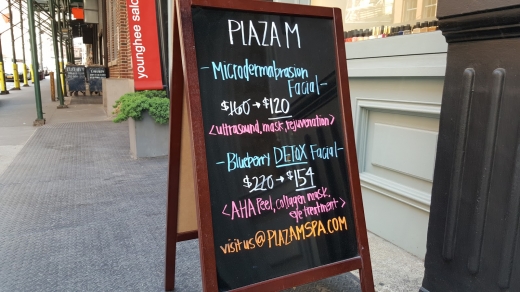 younghee salon
PLAZA M
- Microdermabrasion
Facial -
$160 → $120
<ultrasound, mask, rejuvenation>
- Blueberry DETOX Facial -
$220 → $154
<AHA Peel, collagen mask,
eye treatment>
visit us @ PLAZAMSPA.COM